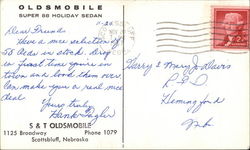 OLDSMOBILE
SUPER 88 HOLIDAY SEDAN
Dear Friends
Have a nice selection of
Olds in stock. Drop
in first time you're in
town and look them over.
Can make you a real nice
deal
Yours truly,
Hank
S & T OLDSMOBILE
1125 Broadway Phone 1079
Scottsbluff, Nebraska
Harry & Mary
Hemingford
2¢